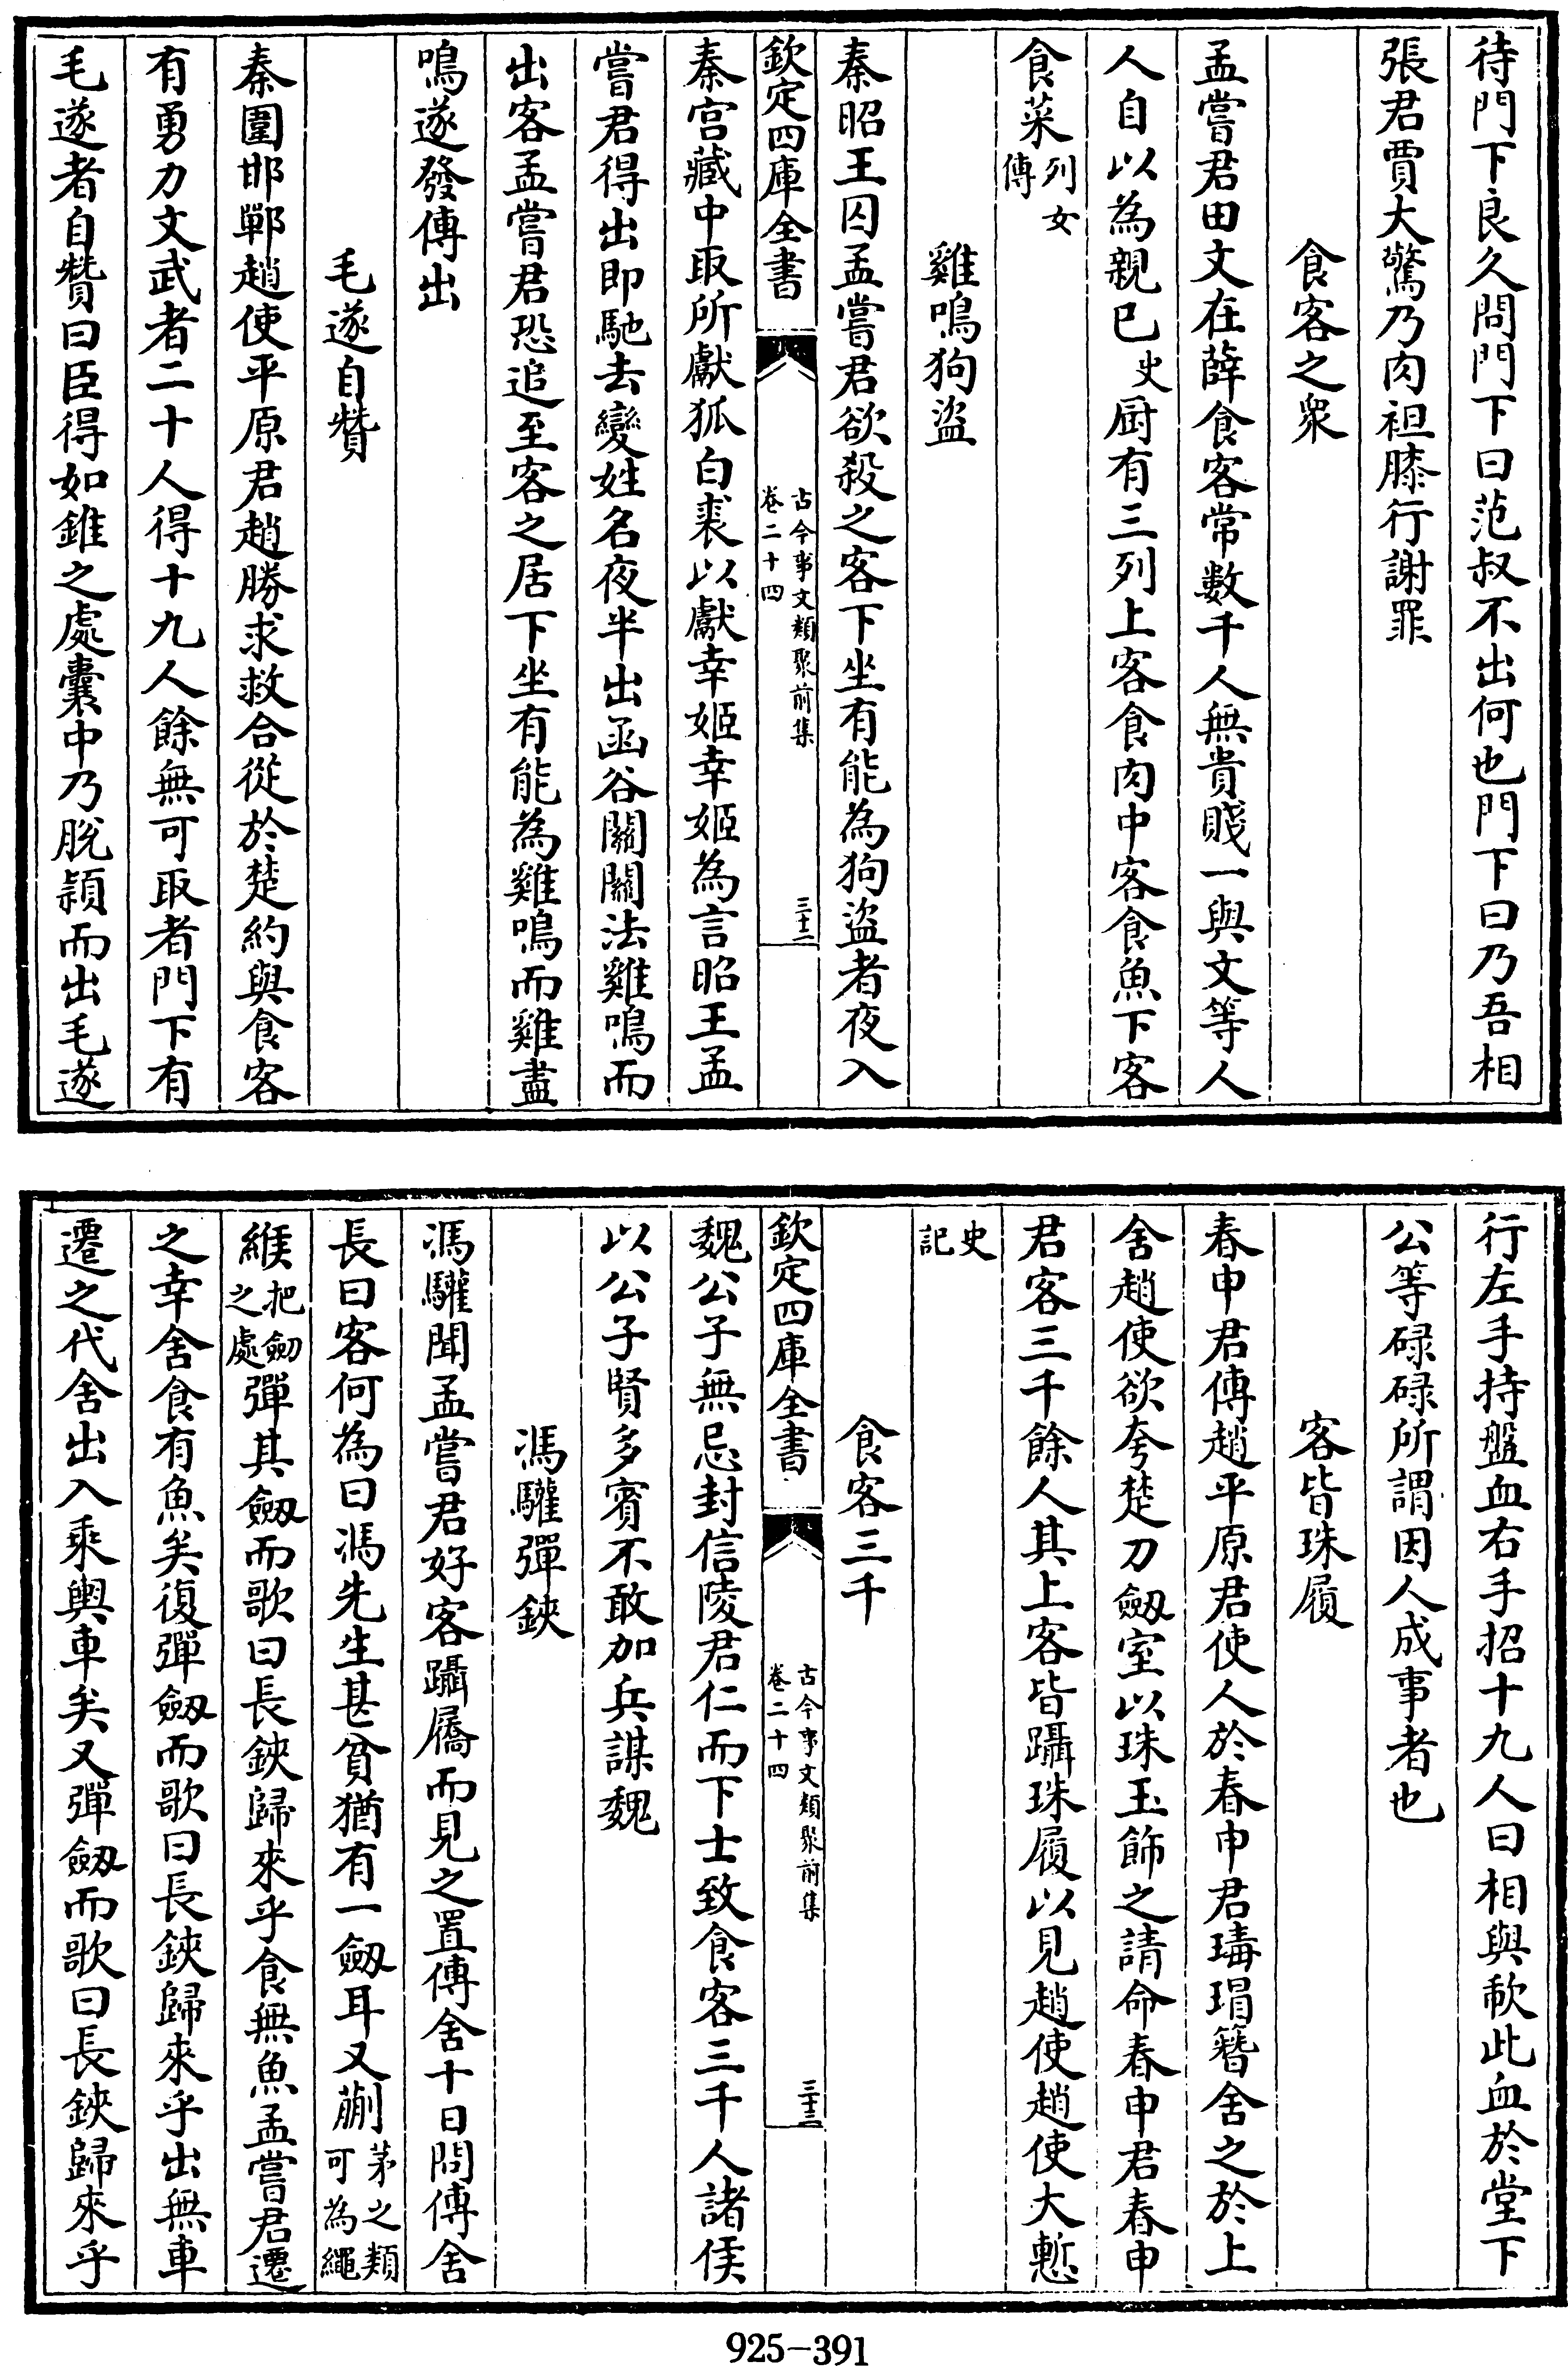 待門下良久問門下曰范叔不出何也門下曰乃吾相
張君賈大驚乃肉袒膝行謝罪
食客之衆
孟嘗君田文在薛食客常數千人無貴賤一與文等人
人自以為親已史厨有三列上客食肉中客食魚下客
食菜列女傳
雞鳴狗盜
秦昭王囚孟嘗君欲殺之客下坐有能為狗盜者夜入
欽定四庫全書 古今事文類聚前集 卷二十四 三十二
秦宫藏中取所獻狐白裘以獻幸姬幸姬為言昭王孟
嘗君得出即馳去變姓名夜半出函谷關關法雞鳴而
出客孟嘗君恐追至客之居下坐有能為雞鳴而雞盡
鳴遂發傳出
毛遂自贊
秦圍邯鄲趙使平原君趙勝求救合從於楚約與食客
有勇力文武者二十人得十九人餘無可取者門下有
毛遂者自贊曰臣得如錐之處囊中乃脫穎而出毛遂
行左手持盤血右手招十九人曰相與歃此血於堂下
公等碌碌所謂因人成事者也
客皆珠履
春申君傳趙平原君使人於春申君瑇瑁簪舍之於上
舍趙使欲夸楚刀劔室以珠玉飾之請命春申君春申
君客三千餘人其上客皆躡珠履以見趙使趙使大慙
史記
食客三千
欽定四庫全書 古今事文類聚前集 卷二十四 三十三
魏公子無忌封信陵君仁而下士致食客三千人諸侯
以公子賢多賓不敢加兵謀魏
馮驩彈鋏
馮驩聞孟嘗君好客躡屩而見之置傳舍十日問傳舍
長曰客何為曰馮先生甚貧猶有一劔耳又蒯茅之類可為繩
緱把劔之處彈其劔而歌曰長鋏歸來乎食無魚孟嘗君遷
之幸舍食有魚矣復彈劔而歌曰長鋏歸來乎出無車
遷之代舍出入乘輿車矣又彈劔而歌曰長鋏歸來乎
925-391